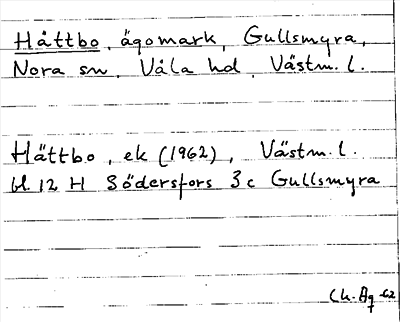 Håttbo, ägomark, Gullsmyra,
Nora sn, Våla hd, Västm. l.
Hättbo, ek (1962), Västm. l.
bl 12 H Södersfors 3c Gullsmyra
-62